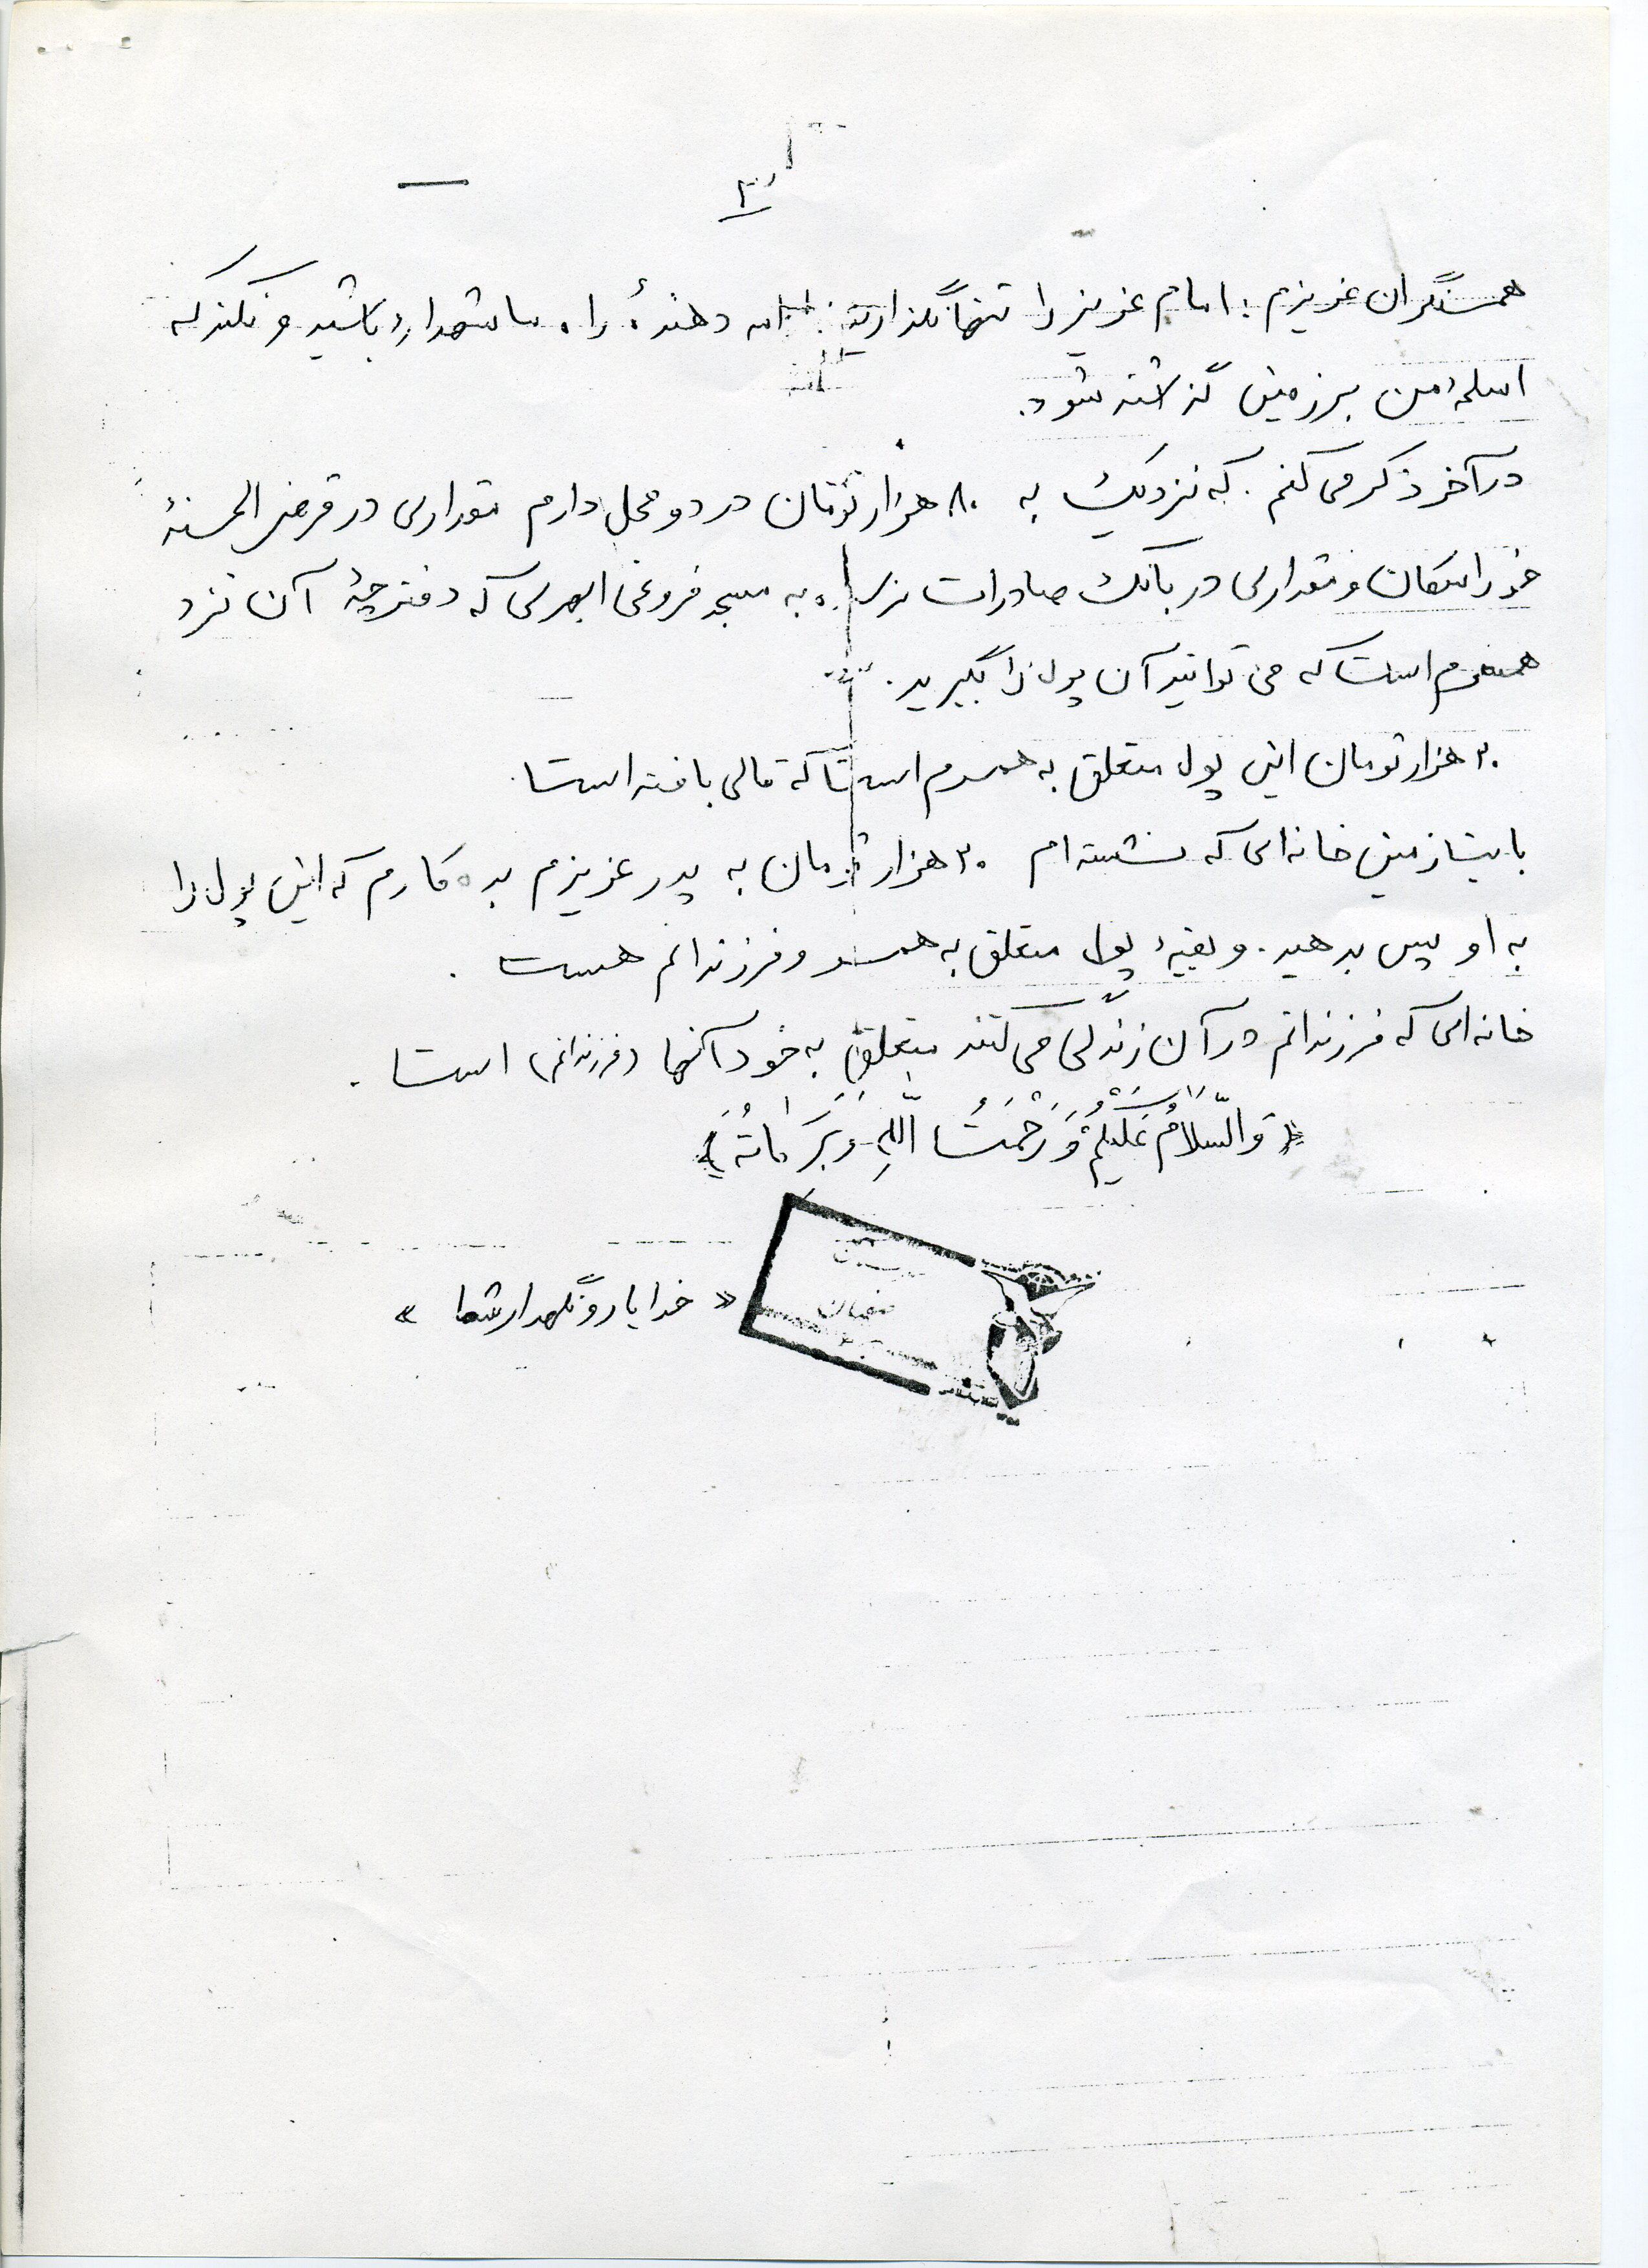 ۴
همسنگران عزیزم: امام عزیز را تنها نگذارید ادامه دهندهٔ راه ما شهداء باشید و نکند که
اسلحهٔ من بر زمین گذاشته شود.
در آخر ذکر می کنم. که نزدیک به ۸۰ هزار تومان در دو محل دارم مقداری در قرض الحسنهٔ
خوراسگان و مقداری در بانک صادرات نرسیده به مسجد فروغی ابهری که دفترچهٔ آن نزد
همسرم است که می توانید آن پول را بگیرید.
۲۰ هزار تومان این پول متعلق به همسرم است که قالی بافته است.
بابت زمین خانه ای که نشسته ام ۲۰ هزار تومان به پدر عزیزم بده کارم که این پول را
به او پس بدهید. و بقیهٔ پول متعلق به همسر و فرزندانم هست.
خانه ای که فرزندانم در آن زندگی می کنند متعلق به خود آنها (فرزندانم) است.
«وَالسَّلامُ عَلَیکُمْ وَ رَحْمَتُ اللّهِ وَ بَرَکاتُهُ»
« خدا یار و نگهدار شما »